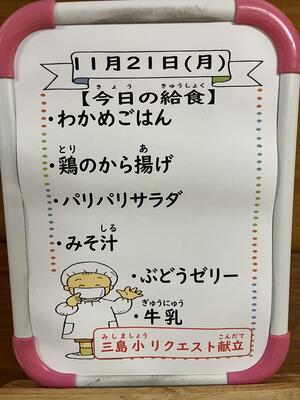 11月21日(月)
【今日の給食】
きょう きゅうしょく
・わかめごはん
・鶏のから揚げ
とり あ
・パリパリサラダ
・みそ汁
しる
・ぶどうゼリー
・牛乳
ぎゅうにゅう
三島小リクエスト献立
みしましょう こんだて